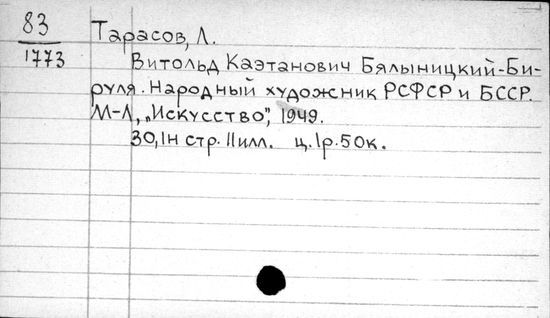 83
1773
Тарасов, Л.
Витольд Каэтанович Бялыницкий-Би-
руля. Народный художник РСФСР и БССР.
М-Л, „Искусство", 1949.
30, 1н стр. 11илл. ц. 1р. 50к.